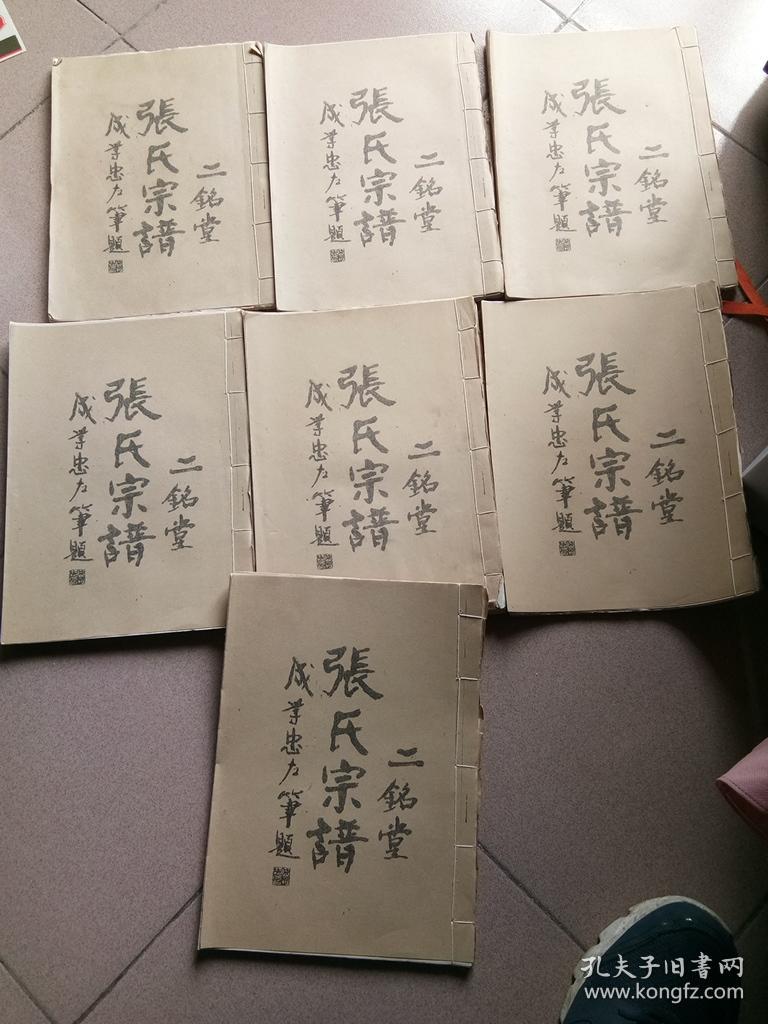 二銘堂
張氏宗譜
成業忠左筆題
二銘堂
張氏宗譜
成業忠左筆題
二銘堂
張氏宗譜
成業忠左筆題
二銘堂
張氏宗譜
成業忠左筆題
二銘堂
張氏宗譜
成業忠左筆題
二銘堂
張氏宗譜
成業忠左筆題
二銘堂
張氏宗譜
成業忠左筆題
孔夫子旧書网
www.kongfz.com